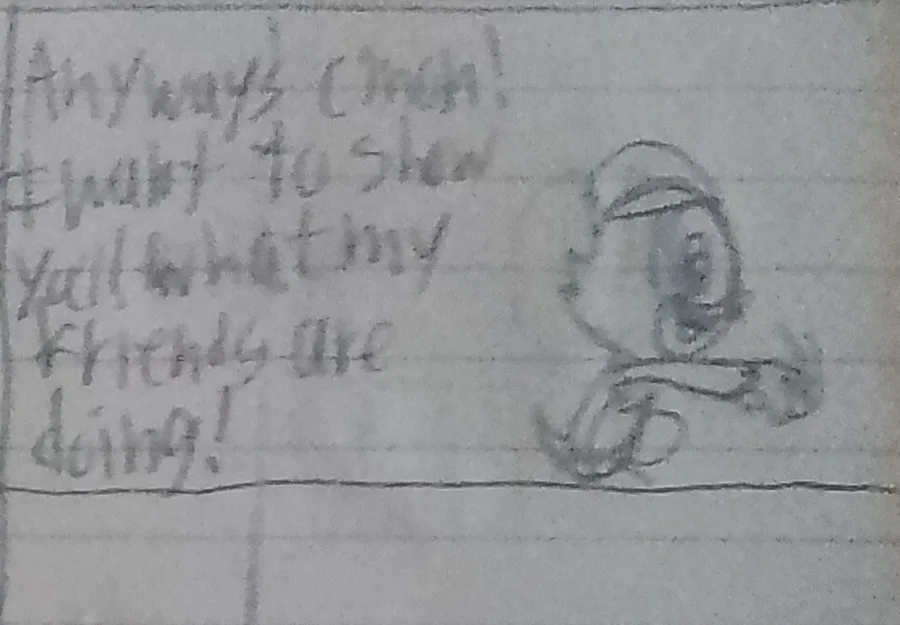 Anyways c'mon!
I want to show
yall what my
friends are
doing!